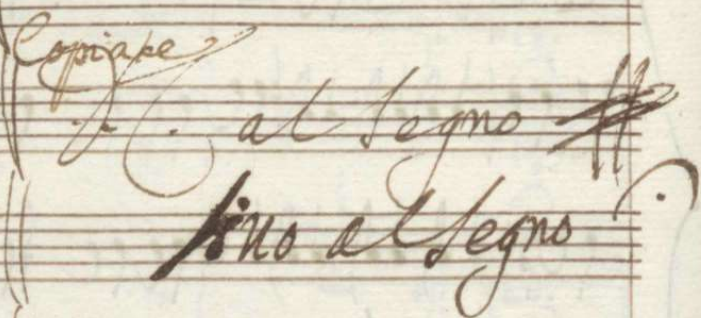 Copiare
Dal Segno #
sino al Segno